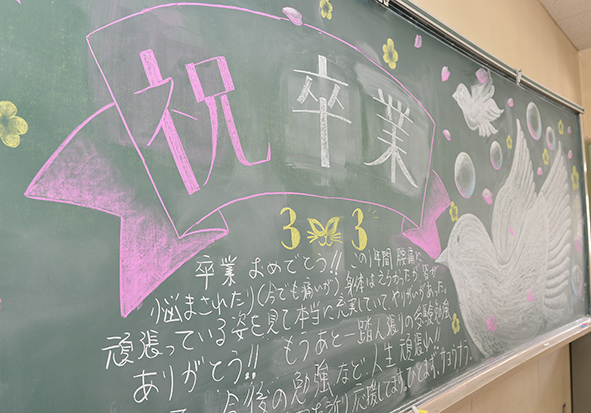 祝卒業
3 3
卒業おめでとう!! この1年間 腰痛に
悩まされたり(今でも痛いが)、身体はえらかったが 皆が
頑張っている姿を見て本当に充実していてやりがいがあった。
ありがとう!! もうあと一踏ん張りの受験勉強
今後の勉強など 人生 頑張れ!!
応援してます。ひとまず、サヨウナラ。